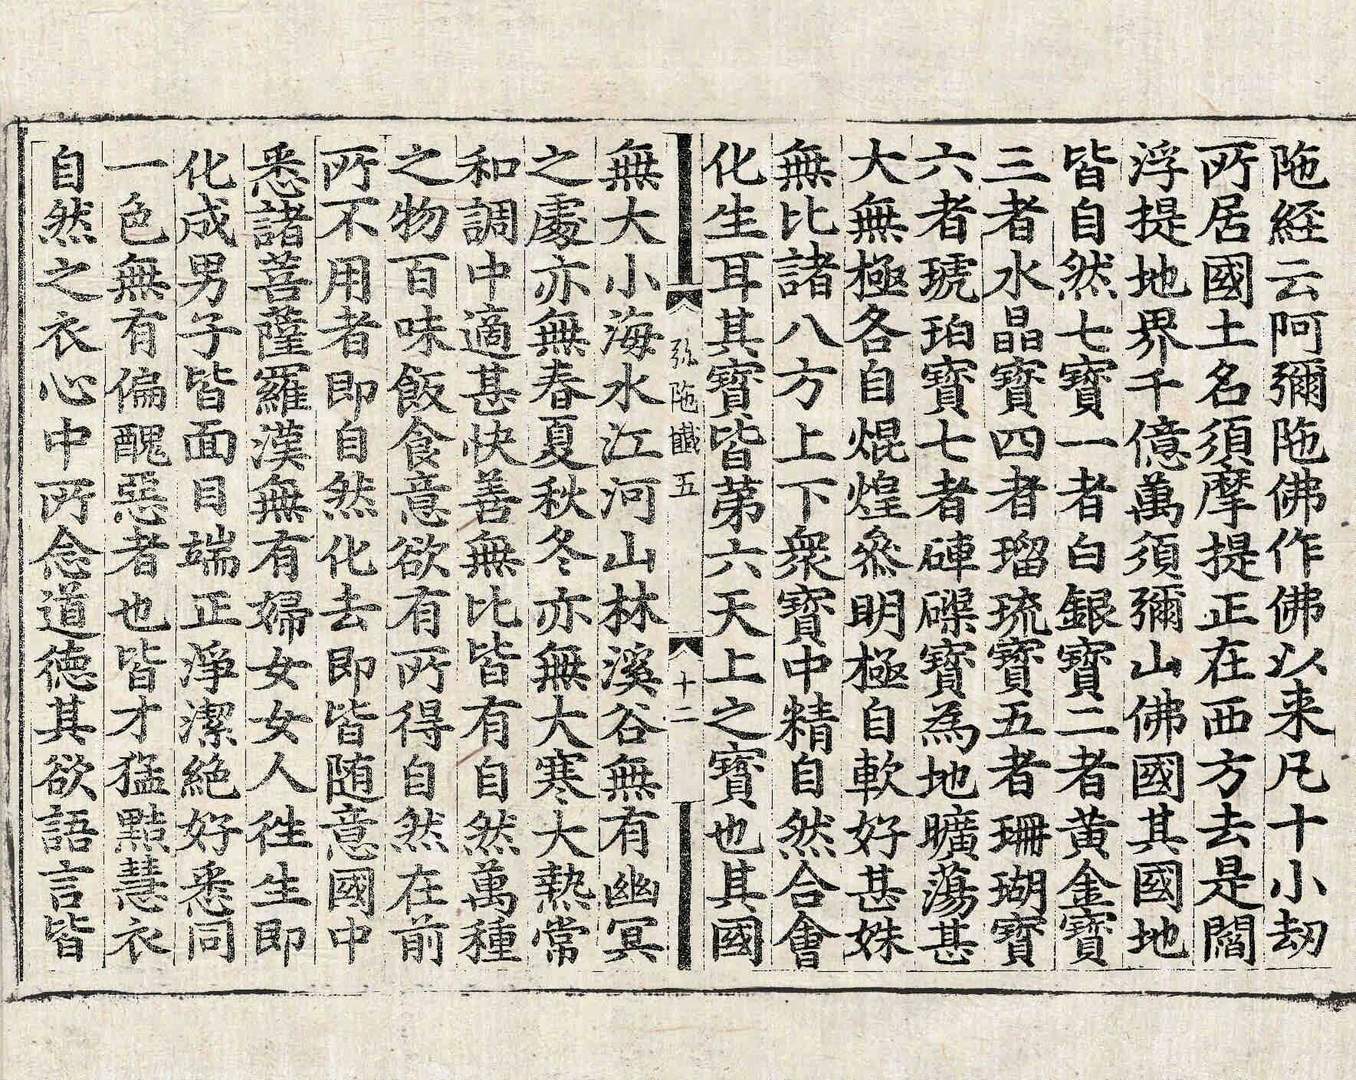 陁経云阿彌陁佛作佛以来凡十小劫
所居國土名須摩提正在西方去是閻
浮提地界千億萬須彌山佛國其國地
皆自然七寶一者白銀寶二者黃金寶
三者水晶寶四者瑠琉寶五者珊瑚寶
六者琥珀寶七者硨磲寶為地曠蕩甚
大無極各自焜煌叅明極自軟好甚姝
無比諸八方上下衆寶中精自然合會
化生耳其寶皆苐六天上之寶也其國
弥陁懺五
十二
無大小海水江河山林溪谷無有幽冥
之處亦無春夏秋冬亦無大寒大熱常
和調中適甚快善無比皆有自然萬種
之物百味飯食意欲有所得自然在前
所不用者即自然化去即皆随意國中
悉諸菩薩羅漢無有婦女女人徃生即
化成男子皆面目端正淨潔絶好悉同
一色無有偏醜惡者也皆才猛黠慧衣
自然之衣心中所念道德其欲語言皆